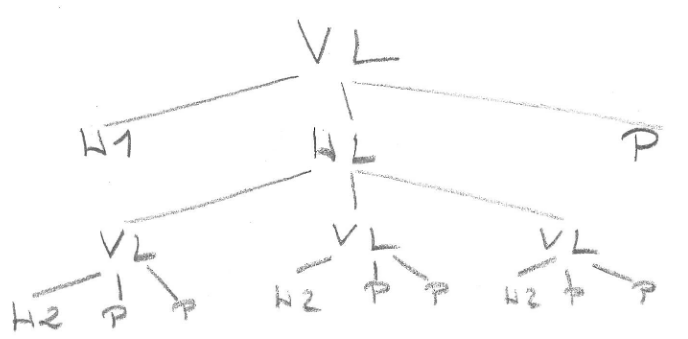 VL
H1 HL P
VL VL VL
H2 P P H2 P P H2 P P